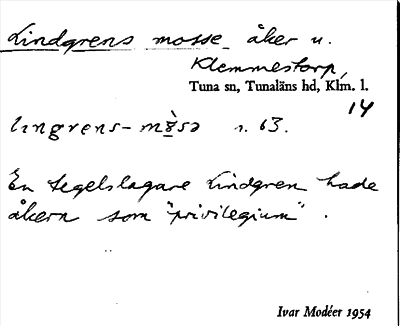 Lindgrens mosse åker u.
Klemmestorp,
Tuna sn, Tunaläns hd, Klm. l.
14
lıngrens-mòsə r. 63.
En tegelslagare Lindgren hade
åkern som "privilegium".
Ivar Modéer 1954